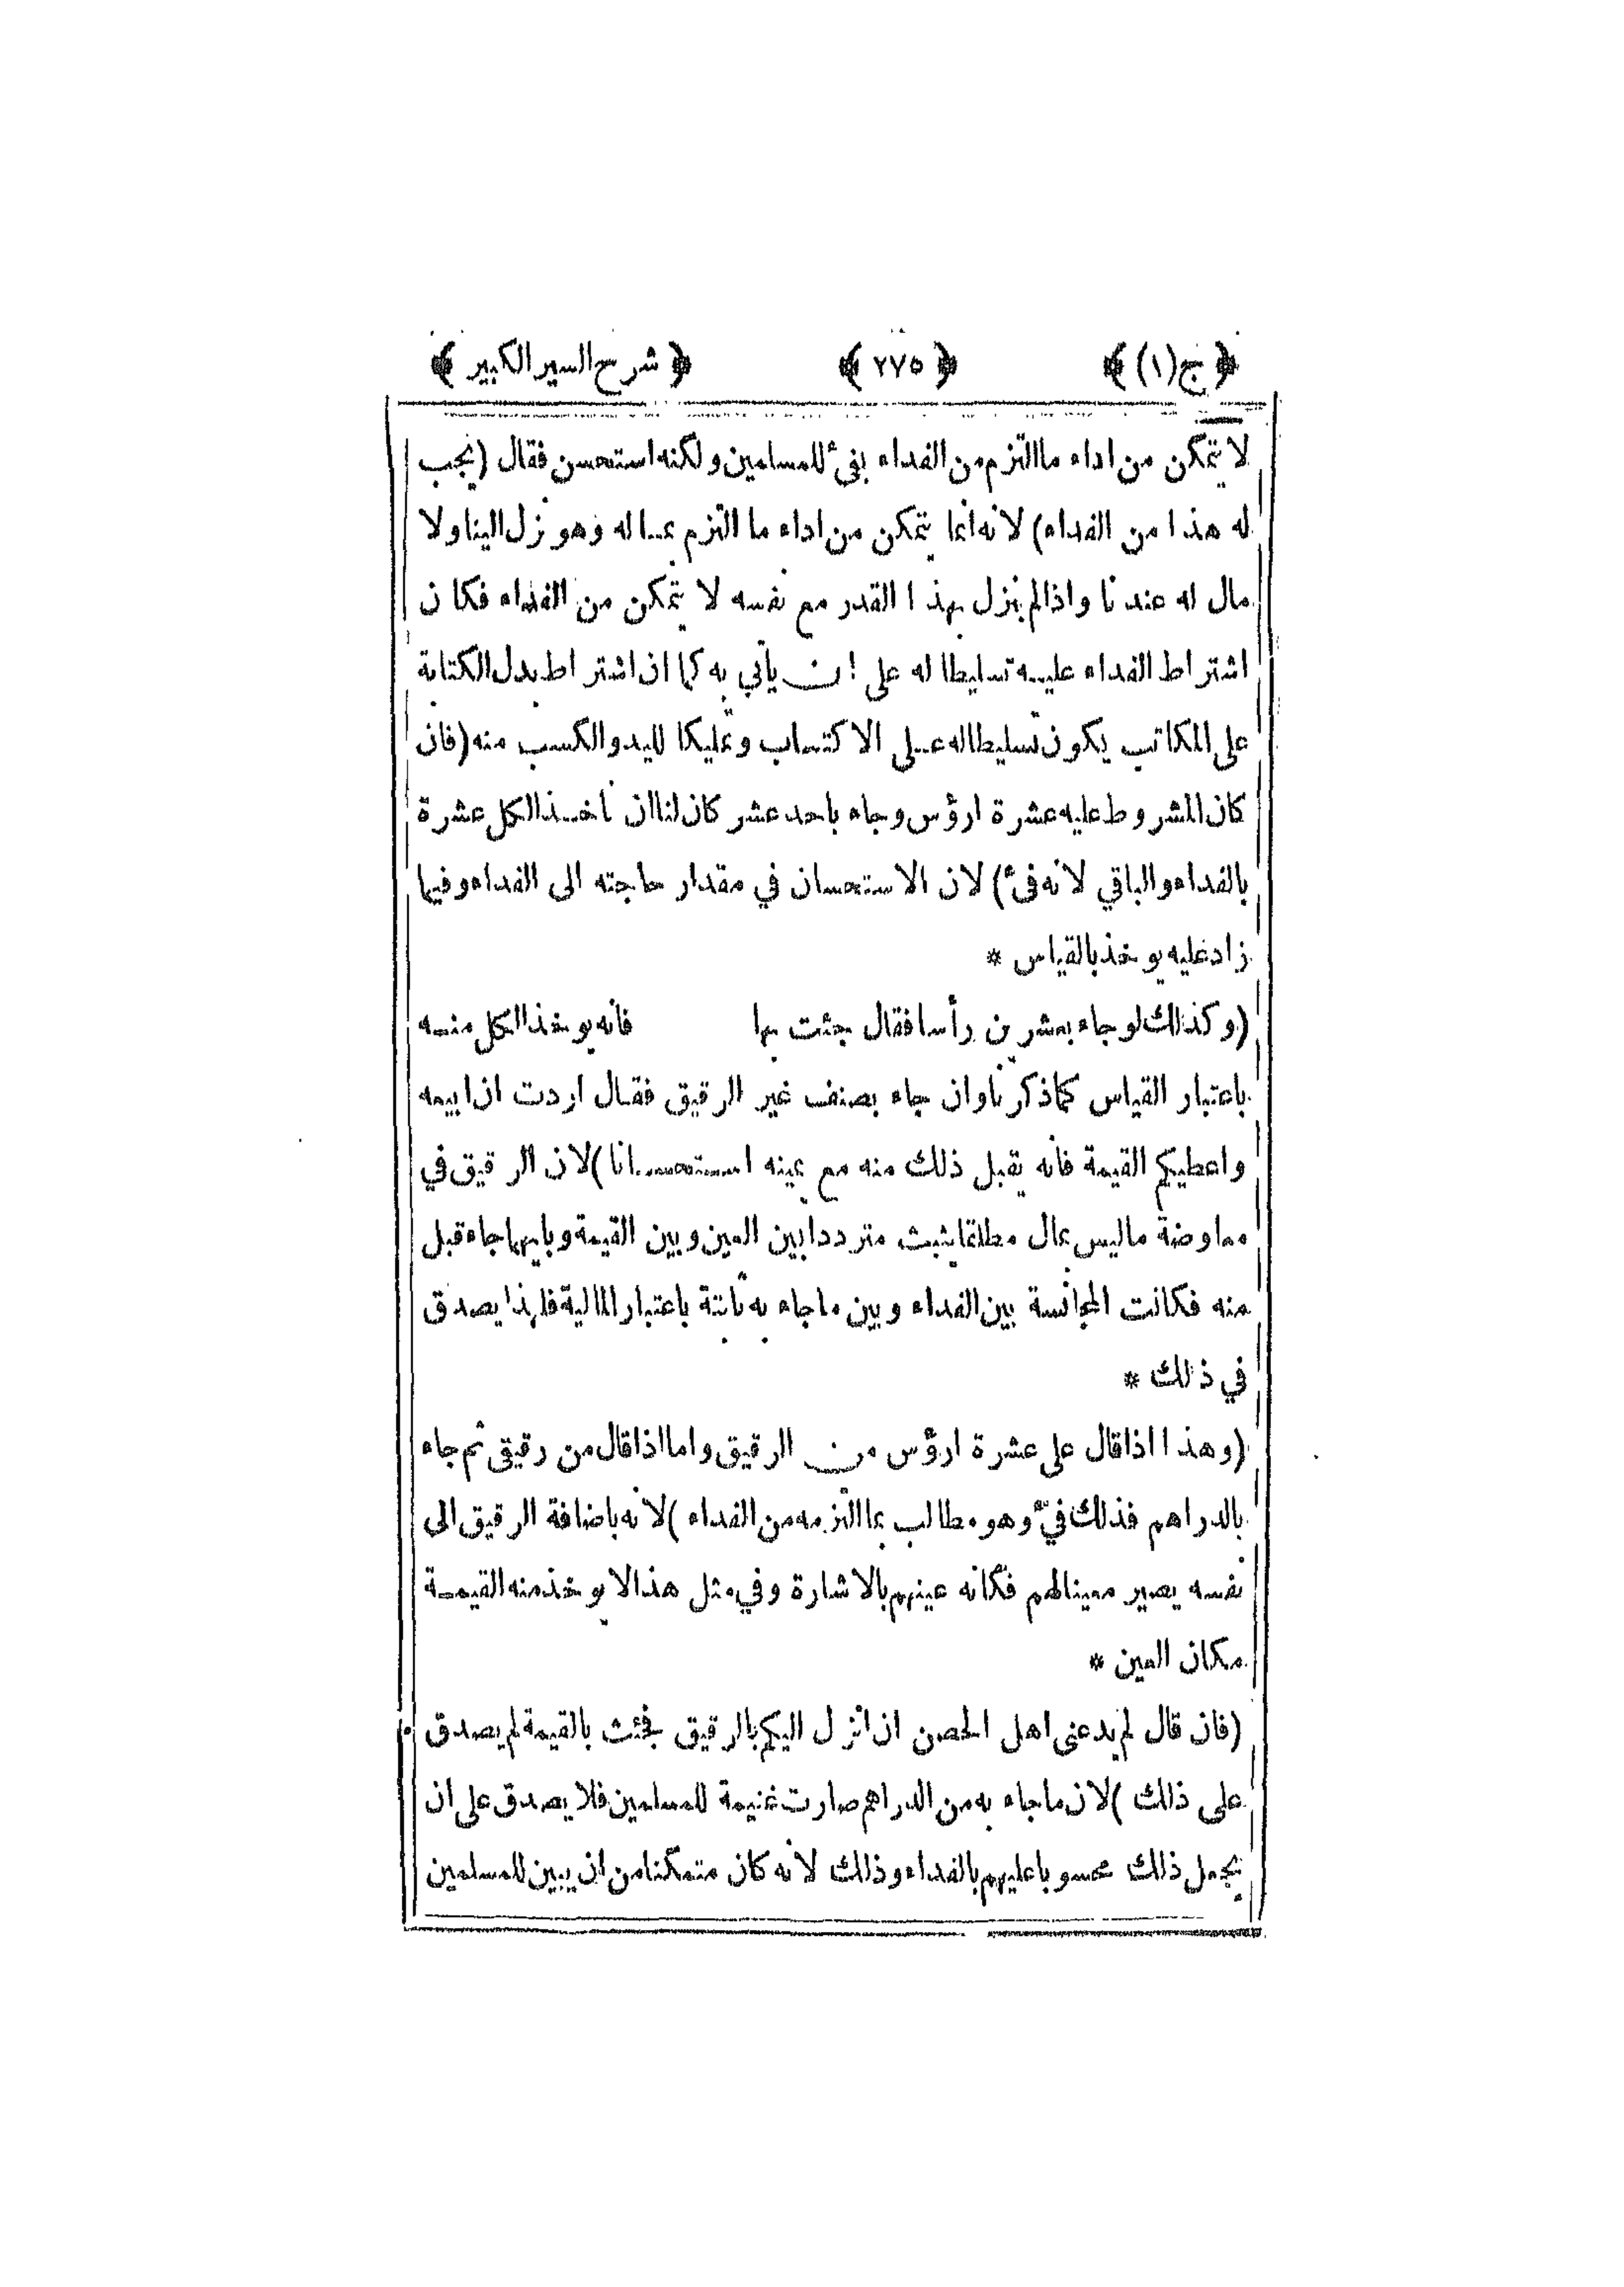 ﴿ ج(١) ﴾ ﴿ ٢٧٥ ﴾ ﴿ شرح السير الكبير ﴾
لا يتمكن من اداء ما التزم من الفداء بفئ للمسلمين ولكنه استحسن فقال (يجب
له هذا من الفداء) لانه انما يتمكن من اداء ما التزم بماله وهو نزل الينا ولا
مال له عندنا واذا لم ينزل بهذا القدر مع نفسه لا يتمكن من الفداء فكان
اشتراط الفداء عليه تسليطا له على ان يأتي به كما ان اشتراط بدل الكتابة
على المكاتب يكون تسليطا له على الاكتساب وتمليكا لليد والكسب منه (فان
كان المشروط عليه عشرة ارؤس وجاء باحد عشر كان لنا ان ناخذ الكل عشرة
بالفداء والباقي لانه فئ) لان الاستحسان في مقدار حاجته الى الفداء وفيما
زاد عليه يوخذ بالقياس *
(وكذلك لو جاء بعشرين رأسا فقال جئت بها فانه يوخذ الكل منه
باعتبار القياس كما ذكرنا وان جاء بصنف غير الرقيق فقال اردت ان ابيعه
واعطيكم القيمة فانه يقبل ذلك منه مع يمينه استحسانا) لان الرقيق في
معاوضة ما ليس بمال مطلقا يثبت مترددا بين العين وبين القيمة وبايهما جاء قبل
منه فكانت المجانسة بين الفداء وبين ما جاء به ثابتة باعتبار المالية فلهذا يصدق
في ذلك *
(وهذا اذا قال على عشرة ارؤس من الرقيق واما اذا قال من رقيقي ثم جاء
بالدراهم فذلك فئ وهو مطالب بما التزمه من الفداء) لانه باضافة الرقيق الى
نفسه يصير معينا لهم فكأنه عينهم بالاشارة وفي مثل هذا لا يوخذ منه القيمة
مكان العين *
(فان قال لم يدعني اهل الحصن ان انزل اليكم بالرقيق فجئت بالقيمة لم يصدق
على ذلك) لان ما جاء به من الدراهم صارت غنيمة للمسلمين فلا يصدق على ان
يجعل ذلك محسوبا عليهم بالفداء وذلك لانه كان متمكنا من ان يبين للمسلمين